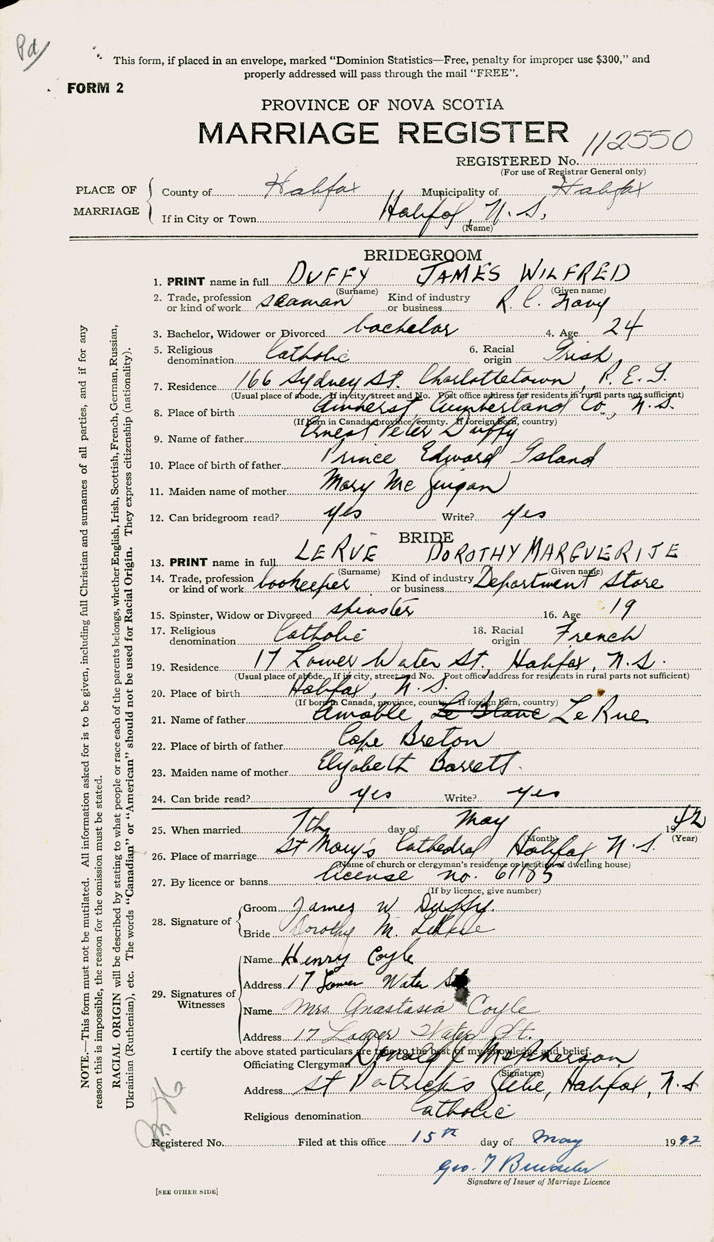 Pd/
This form, if placed in an envelope, marked "Dominion Statistics—Free, penalty for improper use $300," and
properly addressed will pass through the mail "FREE".
FORM 2
PROVINCE OF NOVA SCOTIA
MARRIAGE REGISTER
REGISTERED No. 112550
(For use of Registrar General only)
PLACE OF MARRIAGE
County of Halifax Municipality of Halifax
If in City or Town Halifax, N. S.
(Name)
BRIDEGROOM
1. PRINT name in full DUFFY JAMES WILFRED
(Surname) (Given name)
2. Trade, profession or kind of work seaman Kind of industry or business R. C. Navy
3. Bachelor, Widower or Divorced bachelor 4. Age 24
5. Religious denomination Catholic 6. Racial origin Irish
7. Residence 166 Sydney St. Charlottetown, P. E. I.
(Usual place of abode. If in city, street and No. Post office address for residents in rural parts not sufficient)
8. Place of birth Amherst Cumberland Co., N. S.
(If born in Canada, province, county. If foreign born, country)
9. Name of father Ernest Peter Duffy
10. Place of birth of father Prince Edward Island
11. Maiden name of mother Mary Mc Guigan
12. Can bridegroom read? yes Write? yes
BRIDE
13. PRINT name in full LERUE DOROTHY MARGUERITE
(Surname) (Given name)
14. Trade, profession or kind of work bookeeper Kind of industry or business Department Store
15. Spinster, Widow or Divorced spinster 16. Age 19
17. Religious denomination Catholic 18. Racial origin French
19. Residence 17 Lower Water St., Halifax, N. S.
(Usual place of abode. If in city, street and No. Post office address for residents in rural parts not sufficient)
20. Place of birth Halifax, N. S.
(If born in Canada, province, county. If foreign born, country)
21. Name of father Amable, LeRue
22. Place of birth of father Cape Breton
23. Maiden name of mother Elizabeth Barrett.
24. Can bride read? yes Write? yes
25. When married 7th day of May 1942
(Month) (Year)
26. Place of marriage St Mary's Cathedral Halifax N. S.
(Name of church or clergyman's residence or location of dwelling house)
27. By licence or banns license no. 61185
(If by licence, give number)
28. Signature of Groom James W Duffy.
Bride Dorothy M. LeRue
29. Signatures of Witnesses
Name Henry Coyle
Address 17 Lower Water St
Name Mrs. Anastasia Coyle
Address 17 Lower Water St.
I certify the above stated particulars are true to the best of my knowledge and belief.
Officiating Clergyman Donald McPherson
(Signature)
Address St Patrick's Glebe, Halifax, N. S
Religious denomination Catholic
Registered No. Filed at this office 15th day of May 1942
Geo. T
Signature of Issuer of Marriage Licence
[SEE OTHER SIDE]
NOTE.—This form must not be mutilated. All information asked for is to be given, including full Christian and surnames of all parties, and if for any
reason this is impossible, the reason for the omission must be stated.
RACIAL ORIGIN will be described by stating to what people or race each of the parents belongs, whether English, Irish, Scottish, French, German, Russian,
Ukrainian (Ruthenian), etc. The words "Canadian" or "American" should not be used for Racial Origin. They express citizenship (nationality).